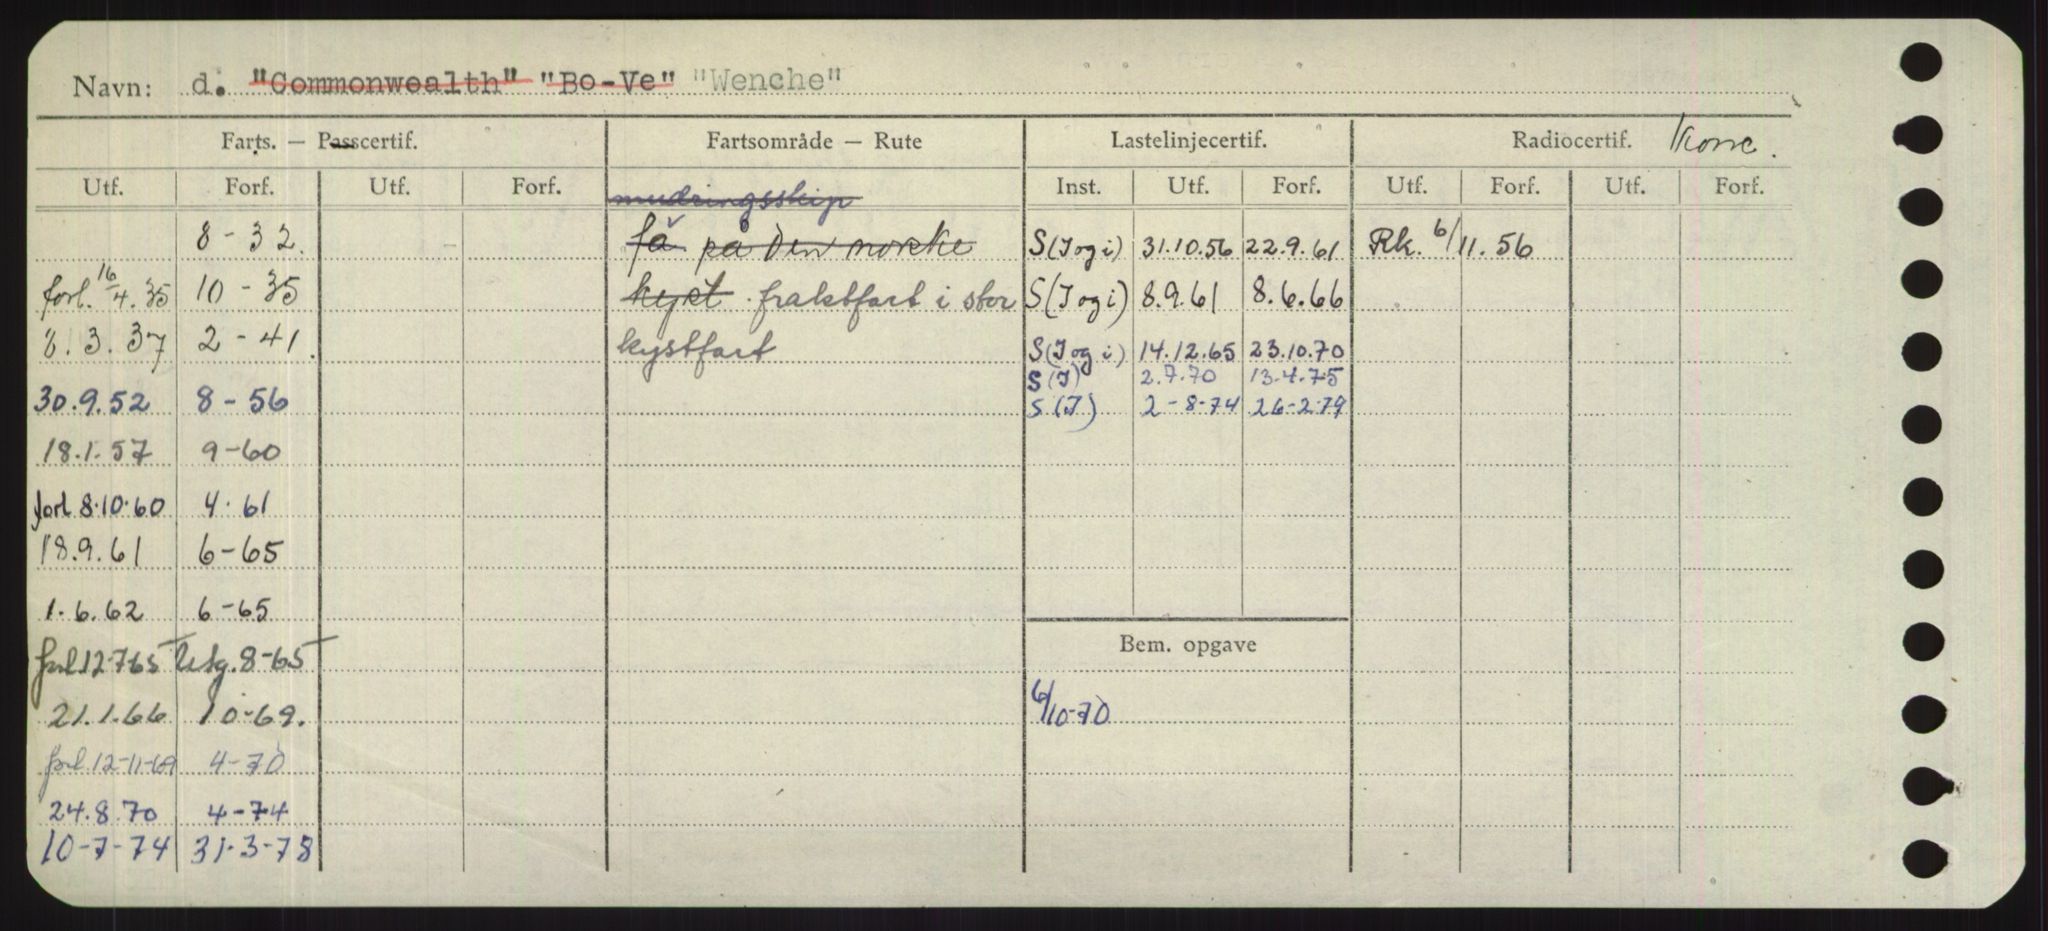 Navn: d. "Commonwealth" "Bo-Ve" "Wenche"
Farts. — Passcertif. Fartsområde — Rute Lastelinjecertif. Radiocertif.
Utf. Forf. Utf. Forf. Inst. Utf. Forf. Utf. Forf. Utf. Forf.
mudringsskip
8-32. få på den norske S(I og i) 31.10.56 22.9.61 Rk. 6/11.56
forl. 16/4.35 10-35 kyst. fraktfart i stor S(I og i) 8.9.61 8.6.66
8.3.37 2-41. kystfart S(I og i) 14.12.65 23.10.70
S(I) 2.7.70 13.4.75
30.9.52 8-56 S(I) 2-8-74 26-2-79
18.1.57 9-60
forl 8.10.60 4.61
18.9.61 6-65
1.6.62 6-65
Bem. opgave
forl 12-7-65 Utg. 8-65
21.1.66 10-69. 6/10-70
forl. 12-11-69 4-70
24.8.70 4-74
10-7-74 31-3-78